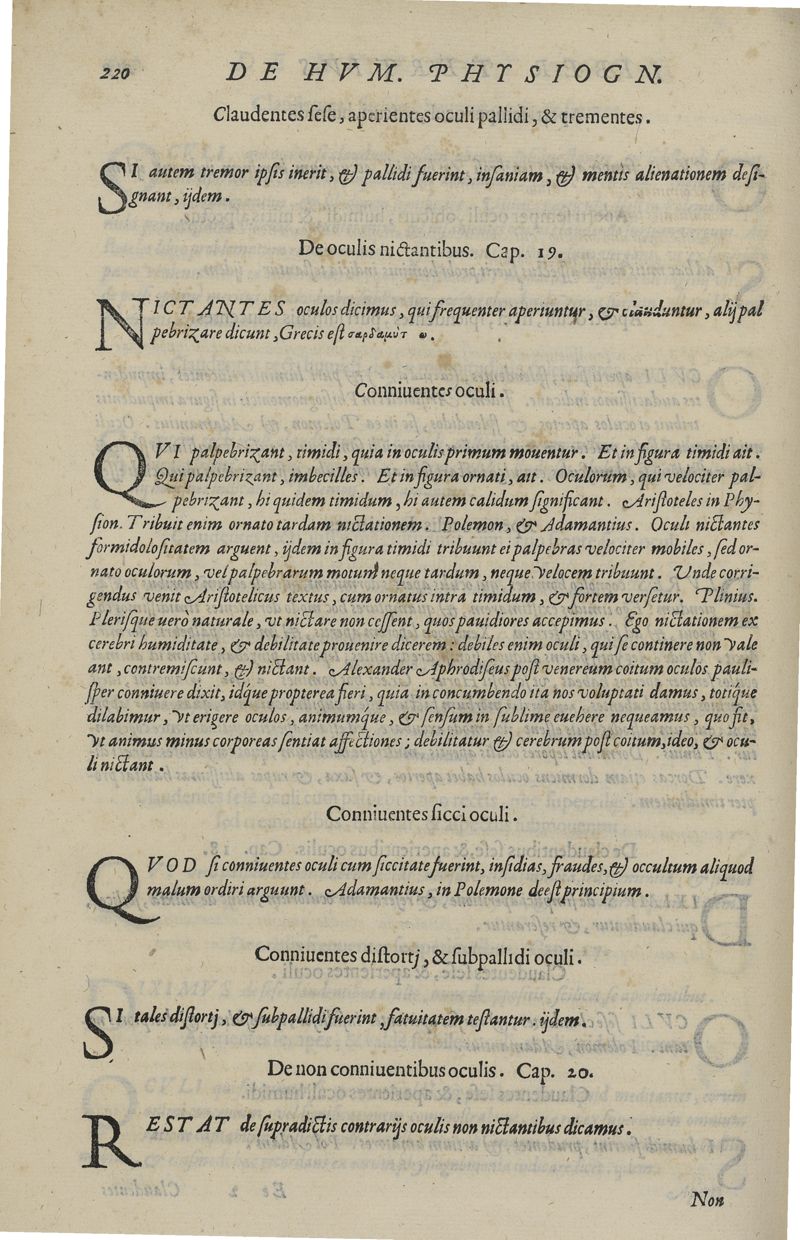 220 DE HVM. PHYSIOGN.
Claudentes ſeſe, aperientes oculi pallidi, & trementes.
SI autem tremor ipſis inerit, & pallidi fuerint, inſaniam, & mentis alienationem deſi-
gnant, ijdem.
De oculis nictantibus. Cap. 19.
NICTANTES oculos dicimus, qui frequenter aperiuntur, & clauduntur, alij pal
pebrizare dicunt, Grecis eſt
Conniuentes oculi.
QVI palpebrizant, timidi, quia in oculis primum mouentur. Et in figura timidi ait.
Qui palpebrizant, imbecilles. Et in figura ornati, ait. Oculorum, qui velociter pal-
pebrizant, hi quidem timidum, hi autem calidum ſignificant. Ariſtoteles in Phy-
ſion. Tribuit enim ornato tardam nictationem. Polemon, & Adamantius. Oculi nictantes
formidoloſitatem arguent, ijdem in figura timidi tribuunt ei palpebras velociter mobiles, ſed or-
nato oculorum, vel palpebrarum motum neque tardum, neque velocem tribuunt. Unde corri-
gendus venit Ariſtotelicus textus, cum ornatus intra timidum, & fortem verſetur. Plinius.
Pleriſque uerò naturale, vt nictare non ceſſent, quos pauidiores accepimus. Ego nictationem ex
cerebri humiditate, & debilitate prouenire dicerem: debiles enim oculi, qui ſe continere non vale
ant, contremiſcunt, & nictant. Alexander Aphrodiſeus poſt venereum coitum oculos pauli-
ſper conniuere dixit, idq́ue propterea fieri, quia in concumbendo ita nos voluptati damus, totiq́ue
dilabimur, vt erigere oculos, animumq́ue, & ſenſum in ſublime euehere nequeamus, quo fit,
vt animus minus corporeas ſentiat affectiones; debilitatur & cerebrum poſt coitum, ideo, & ocu-
li nictant.
Conniuentes ſicci oculi.
QVOD ſi conniuentes oculi cum ſiccitate fuerint, inſidias, fraudes, & occultum aliquod
malum ordiri arguunt. Adamantius, in Polemone deeſt principium.
Conniuentes diſtortj, & ſubpallidi oculi.
SI tales diſtortj, & ſubpallidi fuerint, fatuitatem teſtantur. ijdem.
De non conniuentibus oculis. Cap. 20.
RESTAT de ſupradictis contrarijs oculis non nictantibus dicamus.
Non